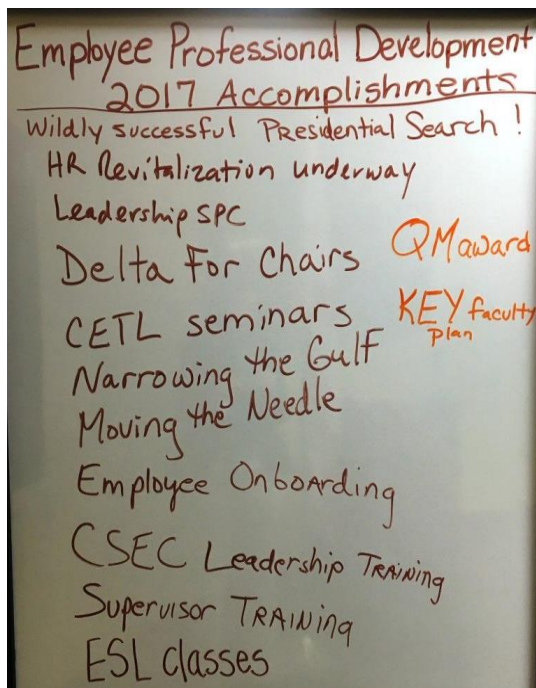 Employee Professional Development
2017 Accomplishments
Wildly successful Presidential Search !
HR Revitalization underway
Leadership SPC
Delta For Chairs
QM award
CETL seminars
KEY faculty
Plan
Narrowing the Gulf
Moving the Needle
Employee Onboarding
CSEC Leadership TRAINing
Supervisor TRAINing
ESL classes